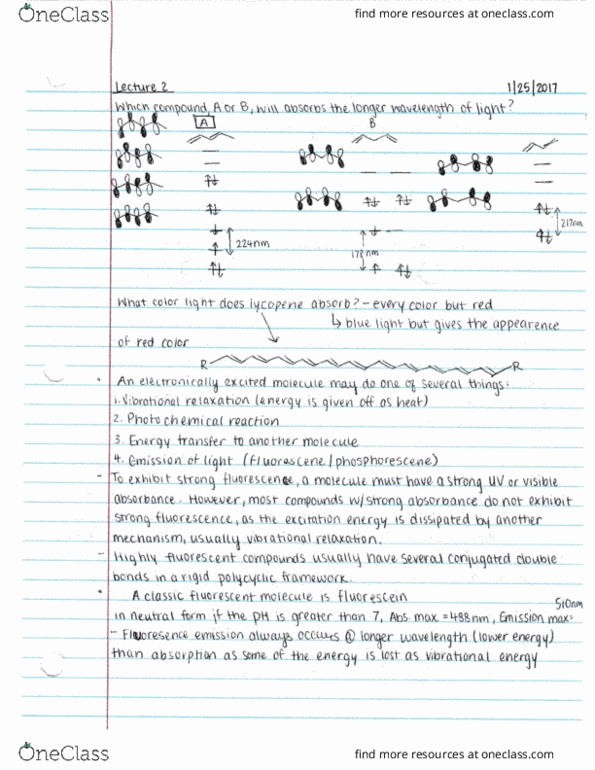 OneClass
find more resources at oneclass.com
Lecture 2
1/25/2017
Which compound, A or B, will absorbs the longer wavelength of light?
A
B
217nm
224nm
178nm
What color light does lycopene absorb? - every color but red
↳ blue light but gives the appearence
of red color
R
R
• An electronically excited molecule may do one of several things:
1. Vibrational relaxation (energy is given off as heat)
2. Photochemical reaction
3. Energy transfer to another molecule
4. Emission of light (fluorescene/phosphorescene)
- To exhibit strong fluorescence, a molecule must have a strong UV or visible
absorbance. However, most compounds w/strong absorbance do not exhibit
strong fluorescence, as the excitation energy is dissipated by another
mechanism, usually vibrational relaxation.
- Highly fluorescent compounds usually have several conjugated double
bonds in a rigid polycyclic framework.
• A classic fluorescent molecule is fluorescein
510nm
in neutral form if the pH is greater than 7, Abs. max = 488nm, Emission max=
- Fluoresence emission always occurs @ longer wavelength (lower energy)
than absorption as some of the energy is lost as vibrational energy
OneClass
find more resources at oneclass.com